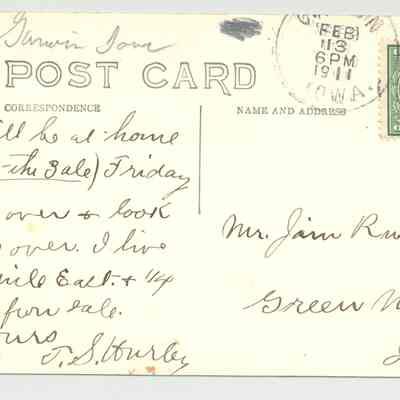 Garwin Iowa
POST CARD
CORRESPONDENCE
NAME AND ADDRESS
FEB
13
6 PM
1911
IOWA.
ll be at home
the Sale) Friday
over & look
over. I live
mile East & 1/4
sale.
ours
J. S. Hurley
Mr. Jim
Green